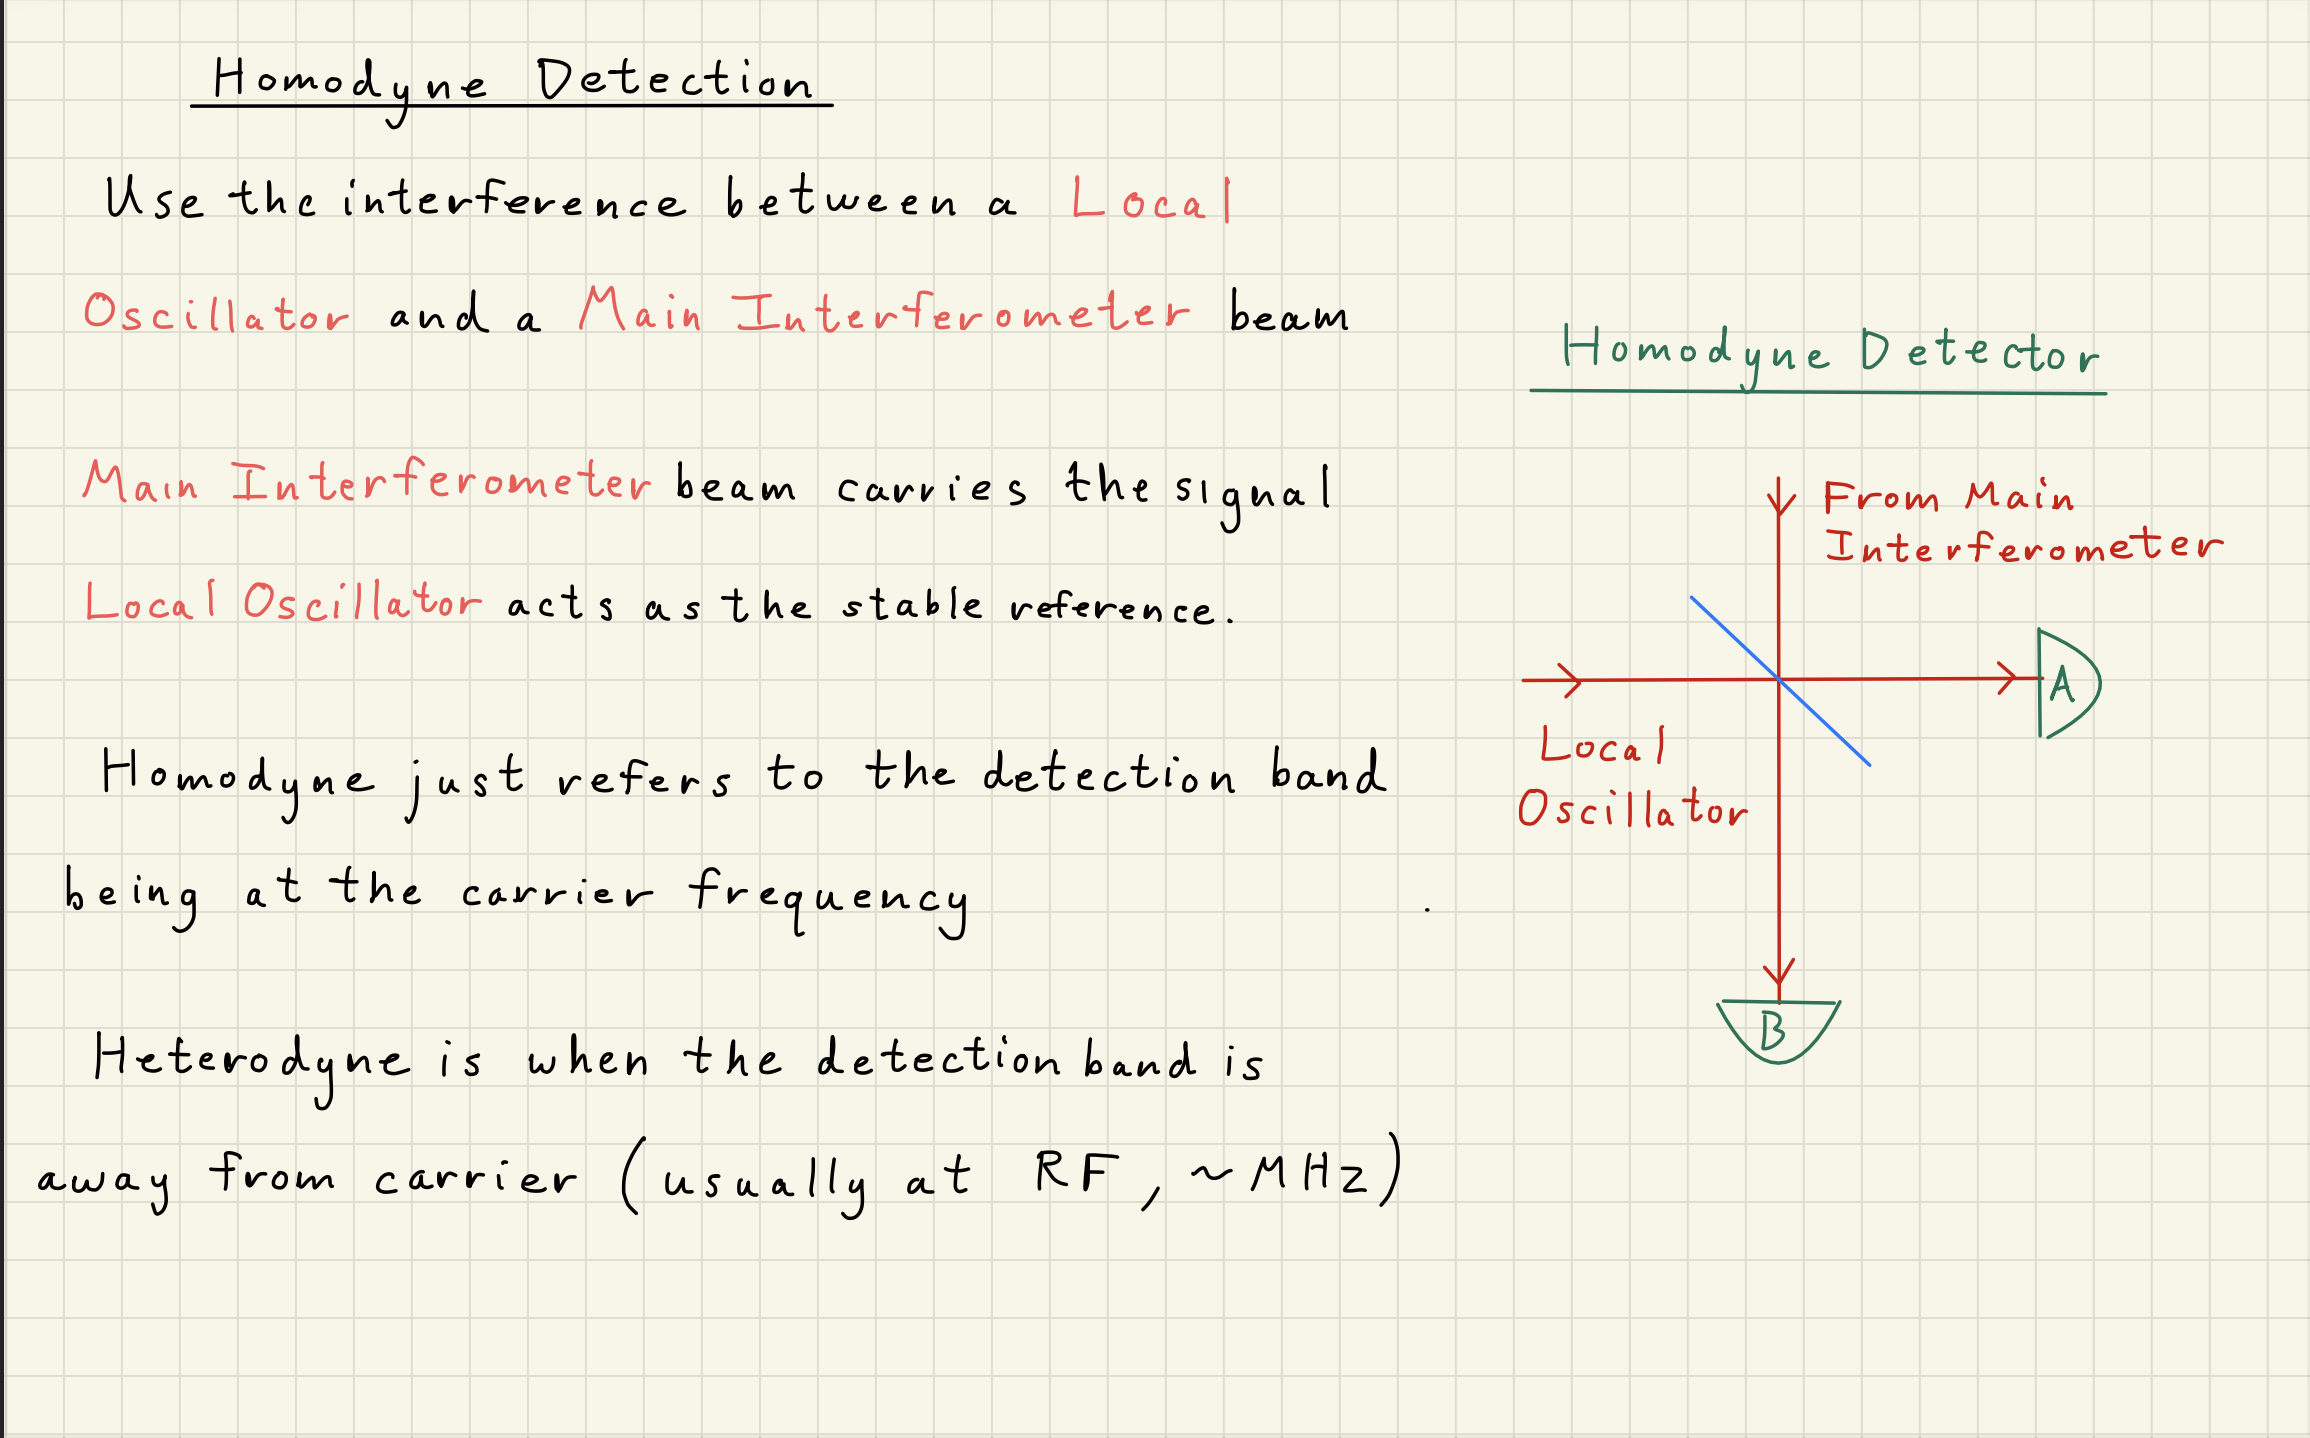 Homodyne Detection
Use the interference between a Local
Oscillator and a Main Interferometer beam
Main Interferometer beam carries the signal
Local Oscillator acts as the stable reference.
Homodyne just refers to the detection band
being at the carrier frequency
Heterodyne is when the detection band is
away from carrier (usually at RF, ~MHz)
Homodyne Detector
From Main
Interferometer
A
Local
Oscillator
B